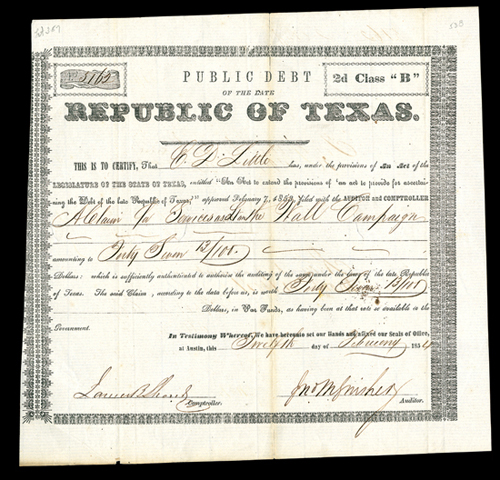 PUBLIC DEBT
2d Class "B"
OF THE DATE
REPUBLIC OF TEXAS.
THIS IS TO CERTIFY, That has, under the provisions of An Act of the
LEGISLATURE OF THE STATE OF TEXAS, entitled "An Act to extend the provisions of "an act to provide for ascertain-
ing the Debt of the late Republic of Texas," approved February 7, filed with the AUDITOR and COMPTROLLER
A Claim for Services in the Wall Campaign
according to Forty Seven 15/100
Dollars: which is sufficiently authenticated to authorize the auditing of the same under the laws of the late Republic
of Texas. The said Claim, according to the data before us, is worth Forty Seven 15/100
Dollars, in Par Funds, as having been at that rate so available to the
Government.
In Testimony Whereof, We have hereunto set our Hands and affixed our Seals of Office,
at Austin, this Twelfth day of February 185
Comptroller.
Auditor.